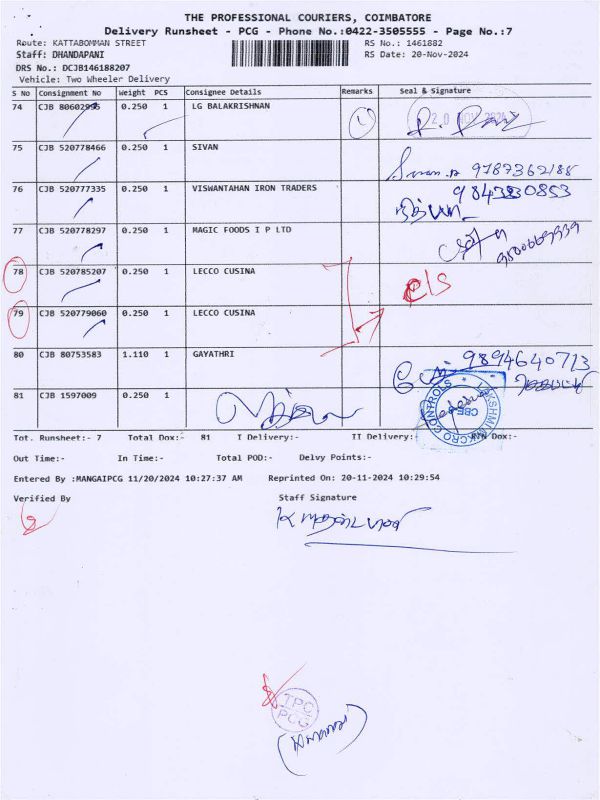 THE PROFESSIONAL COURIERS, COIMBATORE
Delivery Runsheet - PCG - Phone No.:0422-3505555 - Page No.:7
Route: KATTABOMMAN STREET RS No.: 1461882
Staff: DHANDAPANI RS Date: 20-Nov-2024
DRS No.: DCJB146188207
Vehicle: Two Wheeler Delivery
S No Consignment No Weight PCS Consignee Details Remarks Seal & Signature
74 CJB 80602996 0.250 1 LG BALAKRISHNAN 1
75 CJB 520778466 0.250 1 SIVAN 9787362188
76 CJB 520777335 0.250 1 VISWANTAHAN IRON TRADERS
77 CJB 520778297 0.250 1 MAGIC FOODS I P LTD
78 CJB 520785207 0.250 1 LECCO CUSINA
79 CJB 520779060 0.250 1 LECCO CUSINA
80 CJB 80753583 1.110 1 GAYATHRI 9894640713
81 CJB 1597009 0.250 1
Tot. Runsheet:- 7 Total Dox:- 81 I Delivery:- II Delivery:- RTN Dox:-
Out Time:- In Time:- Total POD:- Delvy Points:-
Entered By :MANGAIPCG 11/20/2024 10:27:37 AM Reprinted On: 20-11-2024 10:29:54
Verified By Staff Signature
TPC
PCG